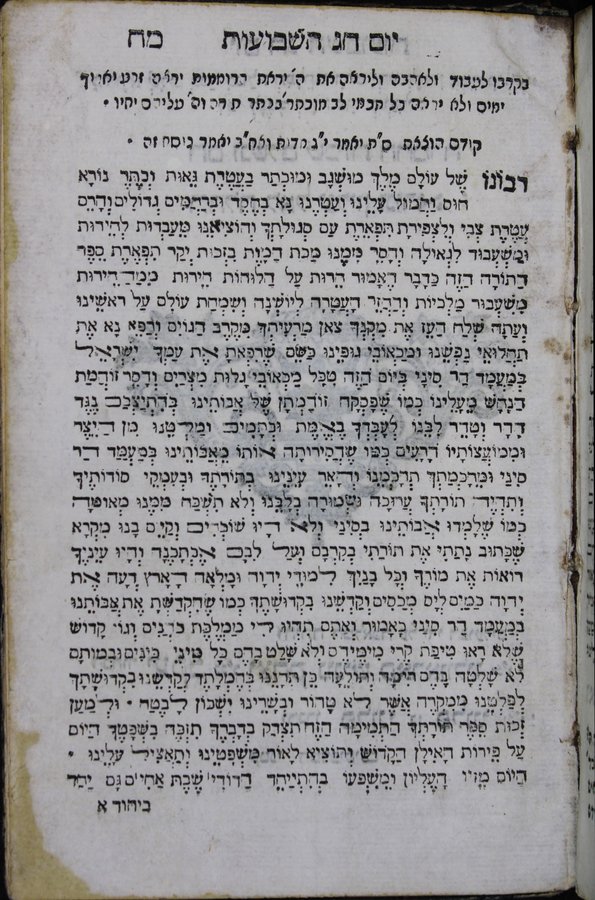 יום חג השבועות מח
בקרבו לעבוד ולאהבה וליראה את ה' יראת הרוממות יראה זרע יאריך
ימים ולא יראה כל חכמי לב מוכתר בכתר תורה וה' עליהם יחיו •
קודם הוצאת ס"ת יאמר י"ג מדות ואח"כ יאמר נוסח זה •
רבונו של עולם מלך מושגב ומוכתר בעטרת נאות וכתר נורא
חוס וחמול עלינו ועטרנו נא בחסד וברחמים גדולים והרם
עטרת צבי ולצפירת תפארת עם סגולתך והוציאנו מעבדות לחירות
ומשעבוד לגאולה והסר ממנו מכת המות בזכות יקר תפארת ספר
התורה הזה כדבר האמור חרות על הלוחות חירות ממה חירות
משעבוד מלכיות והחזר העטרה ליושנה ושמחת עולם על ראשינו
ועתה שלח העז את מקנך צאן מרעיתך מקרב הגוים ורפא נא את
תחלואי נפשנו ומכאובי גופינו כשם שרפאת את עמך ישראל
במעמד הר סיני ביום הזה מכל מכאובי גלות מצרים והסר זוהמת
הנחש מעלינו כמו שפסקה זוהמתן של אבותינו בהתיצבם נגד
ההר וטהר לבנו לעבדך באמת ובתמים ומלטנו מן היצר
ומועצותיו הרעים כמו שהסירותה אותו מאבותינו במעמד הר
סיני ומחכמתך תחכמנו והאר עינינו בתורתך ובעמקי סודותיך
ותהיה תורתך ערוכה ושמורה בלבנו ולא תשכח ממנו מאומה
כמו שלמדו אבותינו בסיני ולא היו שוכחים וקיים בנו מקרא
שכתוב נתתי את תורתי בקרבם ועל לבם אכתבנה והיו עיניך
רואות את מוריך וכל בניך למודי יהוה ומלאה הארץ דעה את
יהוה כמים לים מכסים וקדשינו בקדושתך כמו שהקדשת את אבותנו
במעמד הר סיני כאמור ואתם תהיו לי ממלכת כהנים וגוי קדוש
שלא ראו טיפת קרי מימיהם ולא שלט בהם כל מיני כינים ובמותם
לא שלטה בהם רימה ותולעה כן תרננו בחמלתך לקדשנו בקדושתך
לפלטנו ממקרה אשר לא טהור ובשרינו ישכון לבטח • ולמען
זכות ספר תורתך התמימה הזה תצדק בדברך תזכה בשפטך היום
על פירות האילן הקדוש ותוציא לאור משפטינו ותאציל עלינו •
היום מזיו העליון ומשפעו בהתייחד הדודי' שבת אחים גם יחד
ביחודא